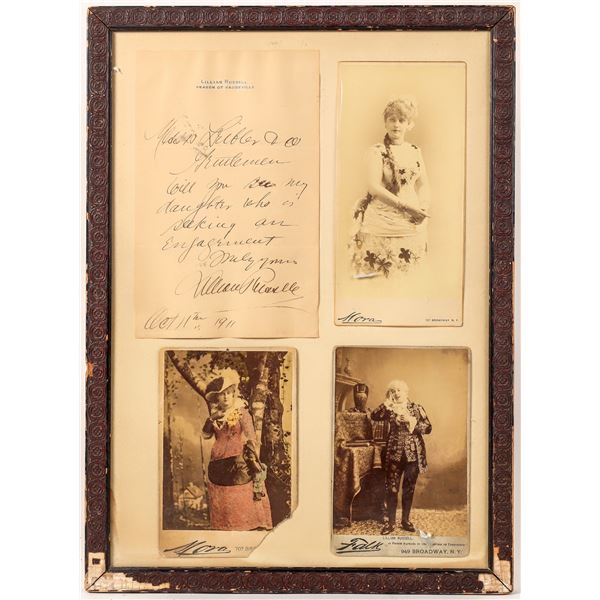 LILLIAN RUSSELL
SEASON OF VAUDEVILLE
Liebler & Co
Gentlemen
Will you see my
daughter who is
seeking an
Engagement
Truly yours
Lillian Russell
Oct 11th 1911
Mora
707 BROADWAY, N.Y.
Mora
707 BR
LILLIAN RUSSELL
Falk
949 BROADWAY, N.Y.